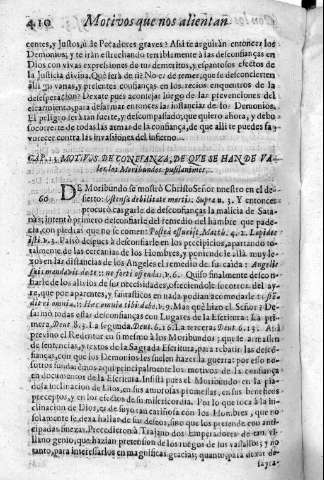 410 Motivos que nos alientan
centes, y Justos, ù de Pecadores graves? Assi te arguiràn entonces los
Demonios, y te iràn estrechando terriblemente à las desconfianças en
Dios con vivas expressiones de tus demeritos, y espantosos efectos de
la Justicia divina. Què serà de ti? No es de temer, que se desconcierten
alli vanas, y presentes confianças en los recios enquentros de la
desesperacion? Dexate pues aconsejar luego de las prevenciones del
escarmiento, para desarmar entonces las instancias de los Demonios.
El peligro serà tan fuerte, y desconsolado, que quiero ahora, y debo
socorrerte de todas las armas de la confiança, de que alli te puedas
vorecer contra las invasiones del infierno.
CAP. MOTIVOS DE CONFIANZA, DE QUE SE HAN DE VA-
ler los Moribundos pusilanimes.
60 DE Moribundo se mostrò Christo Señor nuestro en el de-
sierto: Ostensa debilitate mortis: Supra n. 3. Y entonces
procurò cargarle de desconfianças la malicia de Sata-
nàs; intentò primero desconfiarle del remedio del hambre que pade-
cia, con piedras que no se comen: Postea esuriit. Matth. 4. 2. Lapides
isti v. 3. Passò despues à desconfiarle en los precipicios, apartando to-
talmente de las cercanias de los Hombres, y poniendole allà muy le-
xos en las distancias de los Angeles el remedio de su caìda: Angelis
suis mandavit de te: ne fortè offendas. v. 6. Quiso finalmente descon-
fiarle de los alivios de sus necessidades, ofreciendole socorros del ay-
re, que por aparentes, y fantasticos en nada podian acomodarle:
dit ei omnia:: hæc omnia tibi dabo. v. 9. Mas què hizo el Señor? De-
sarmò todas essas desconfianças con Lugares de la Escritura: La pri-
mera, Deut. 8. 3. La segunda, Deut. 6. 16. La tercera, Deut. 6. 13. Assi
previno el Redentor en si mesmo à los Moribundos; que se armassen
de sentencias, y textos de la Sagrada Escritura, para rebatir las descon-
fianças, con que los Demonios les suelen hacer la guerra: por esso no-
sotros fundamos aqui principalmente los motivos de la confiança
en documentos de la Escritura. Insista pues el Moribundo en la pia-
dosa inclinacion de Dios, en sus amorosas promessas, en sus benignos
preceptos, y en los efectos de su misericordia. Por lo que toca à la in-
clinacion de Dios, es de suyo tan cariñosa con los Hombres, que no
solamente se dexa hallar de sus deseos, sino que los pretende con anti-
cipadas finezas. Precedieron à Trajano dos Emperadores de tan vi-
llano genio, que hazian pretension de los ruegos de sus vassallos; y no
tanto, para interessarlos en magnificas gracias; quanto, para dexar de-